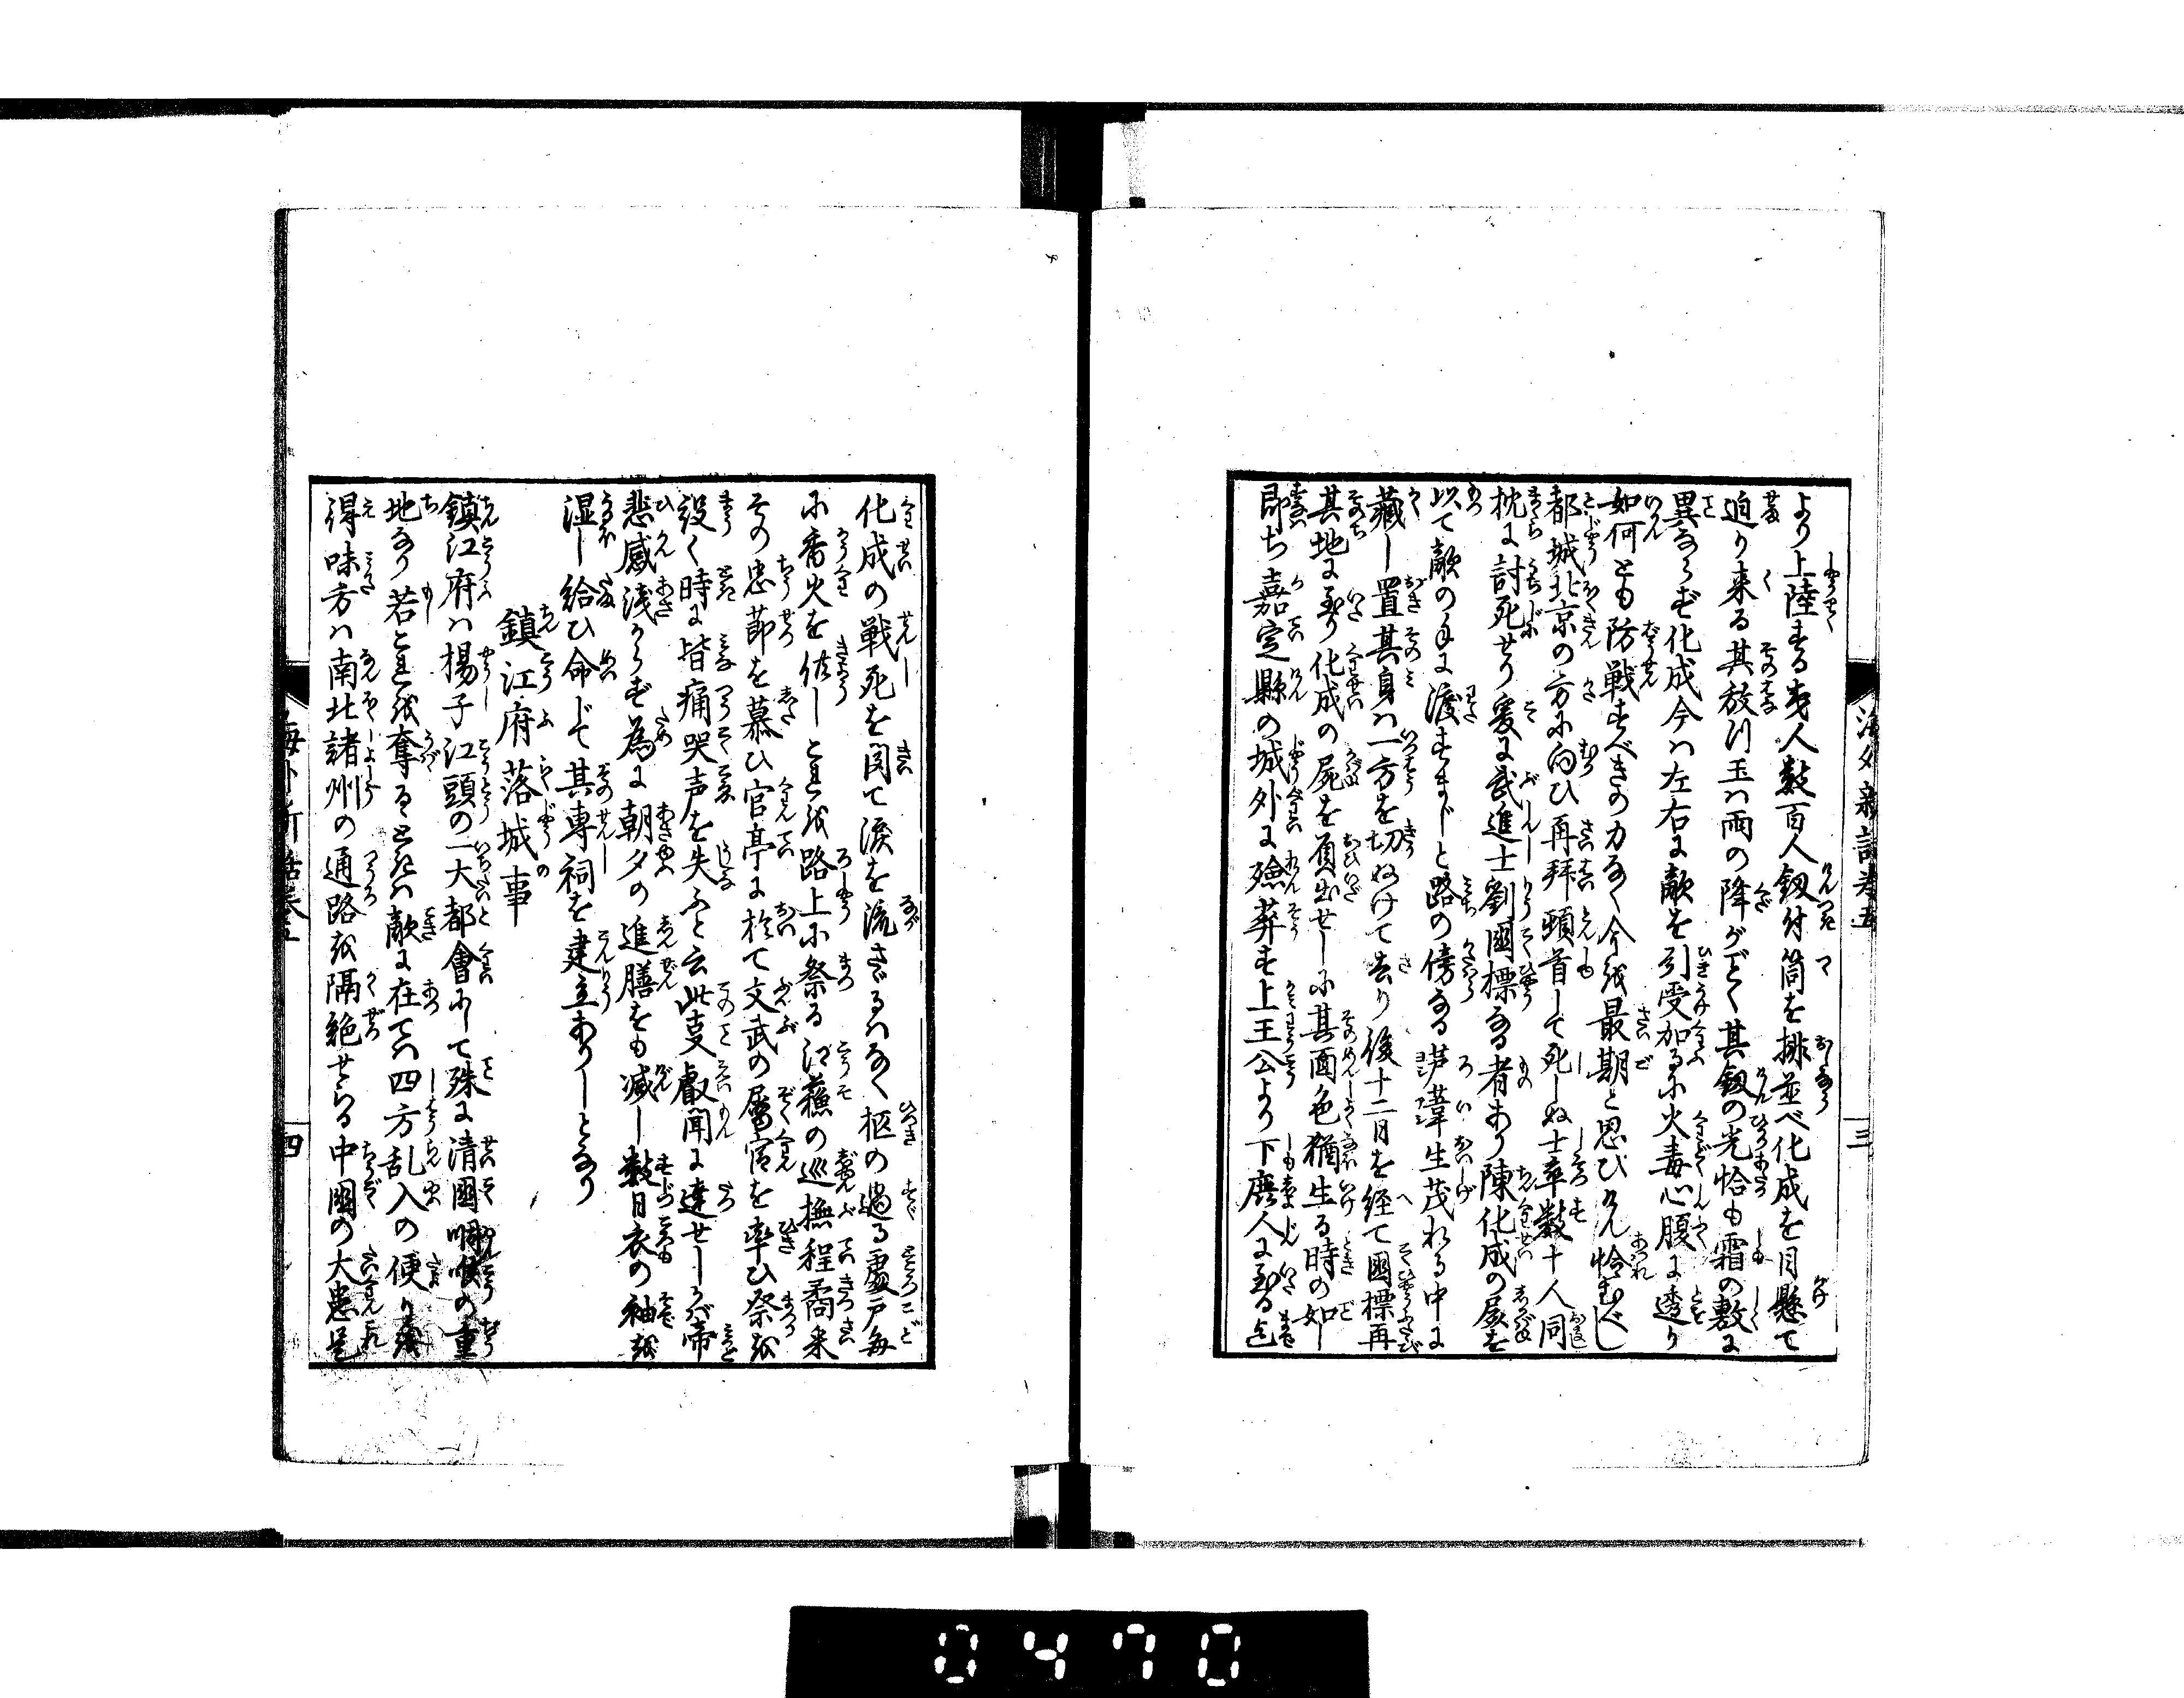 より上陸する夷人数百人釼付筒を排並べ化成を目懸て
迫り来る其放つ玉ハ雨の降がごとく其釼の光恰も霜の敷に
異ならず化成今ハ左右に敵を引受加るに火毒心腹に透り
如何とも防戦すべきの力なく今を最期と思ひけん怜むべし
都城北京の方に向ひ再拝頓首して死しぬ士卒数十人同
枕に討死せり爰に武進士劉國標なる者あり陳化成の屍を
以て敵の手に渡すまじと路の傍なる芦葦生茂れる中に
蔵し置其身ハ一方を切ぬけて去り後十二日を経て國標再
其地に至り化成の屍を負出せしに其面色猶生る時の如し
即ち嘉定縣の城外に殮葬す上王公より下庶人に至る迄
化成の戦死を聞て涙を流さざるハなく柩の過る處戸毎
に香火を供しこれを路上に祭る江蘇の巡撫程矞采
その忠節を慕ひ官亭に於て文武の属官を率ひ祭を
設く時に皆痛哭声を失ふと云此支叡聞に達せしかバ帝
悲感浅からず為に朝夕の進膳をも減し数日衣の袖を
湿し給ひ命じて其専祠を建立ありしとなり
鎮江府落城事
鎮江府ハ揚子江頭の一大都會にして殊に清國咽喉の重
地なり若これを奪るときハ敵に在てハ四方乱入の便りを
得味方ハ南北諸州の通路を隔絶せらる中國の大患是
海外新話巻五
三
海外新話巻五
四
0470